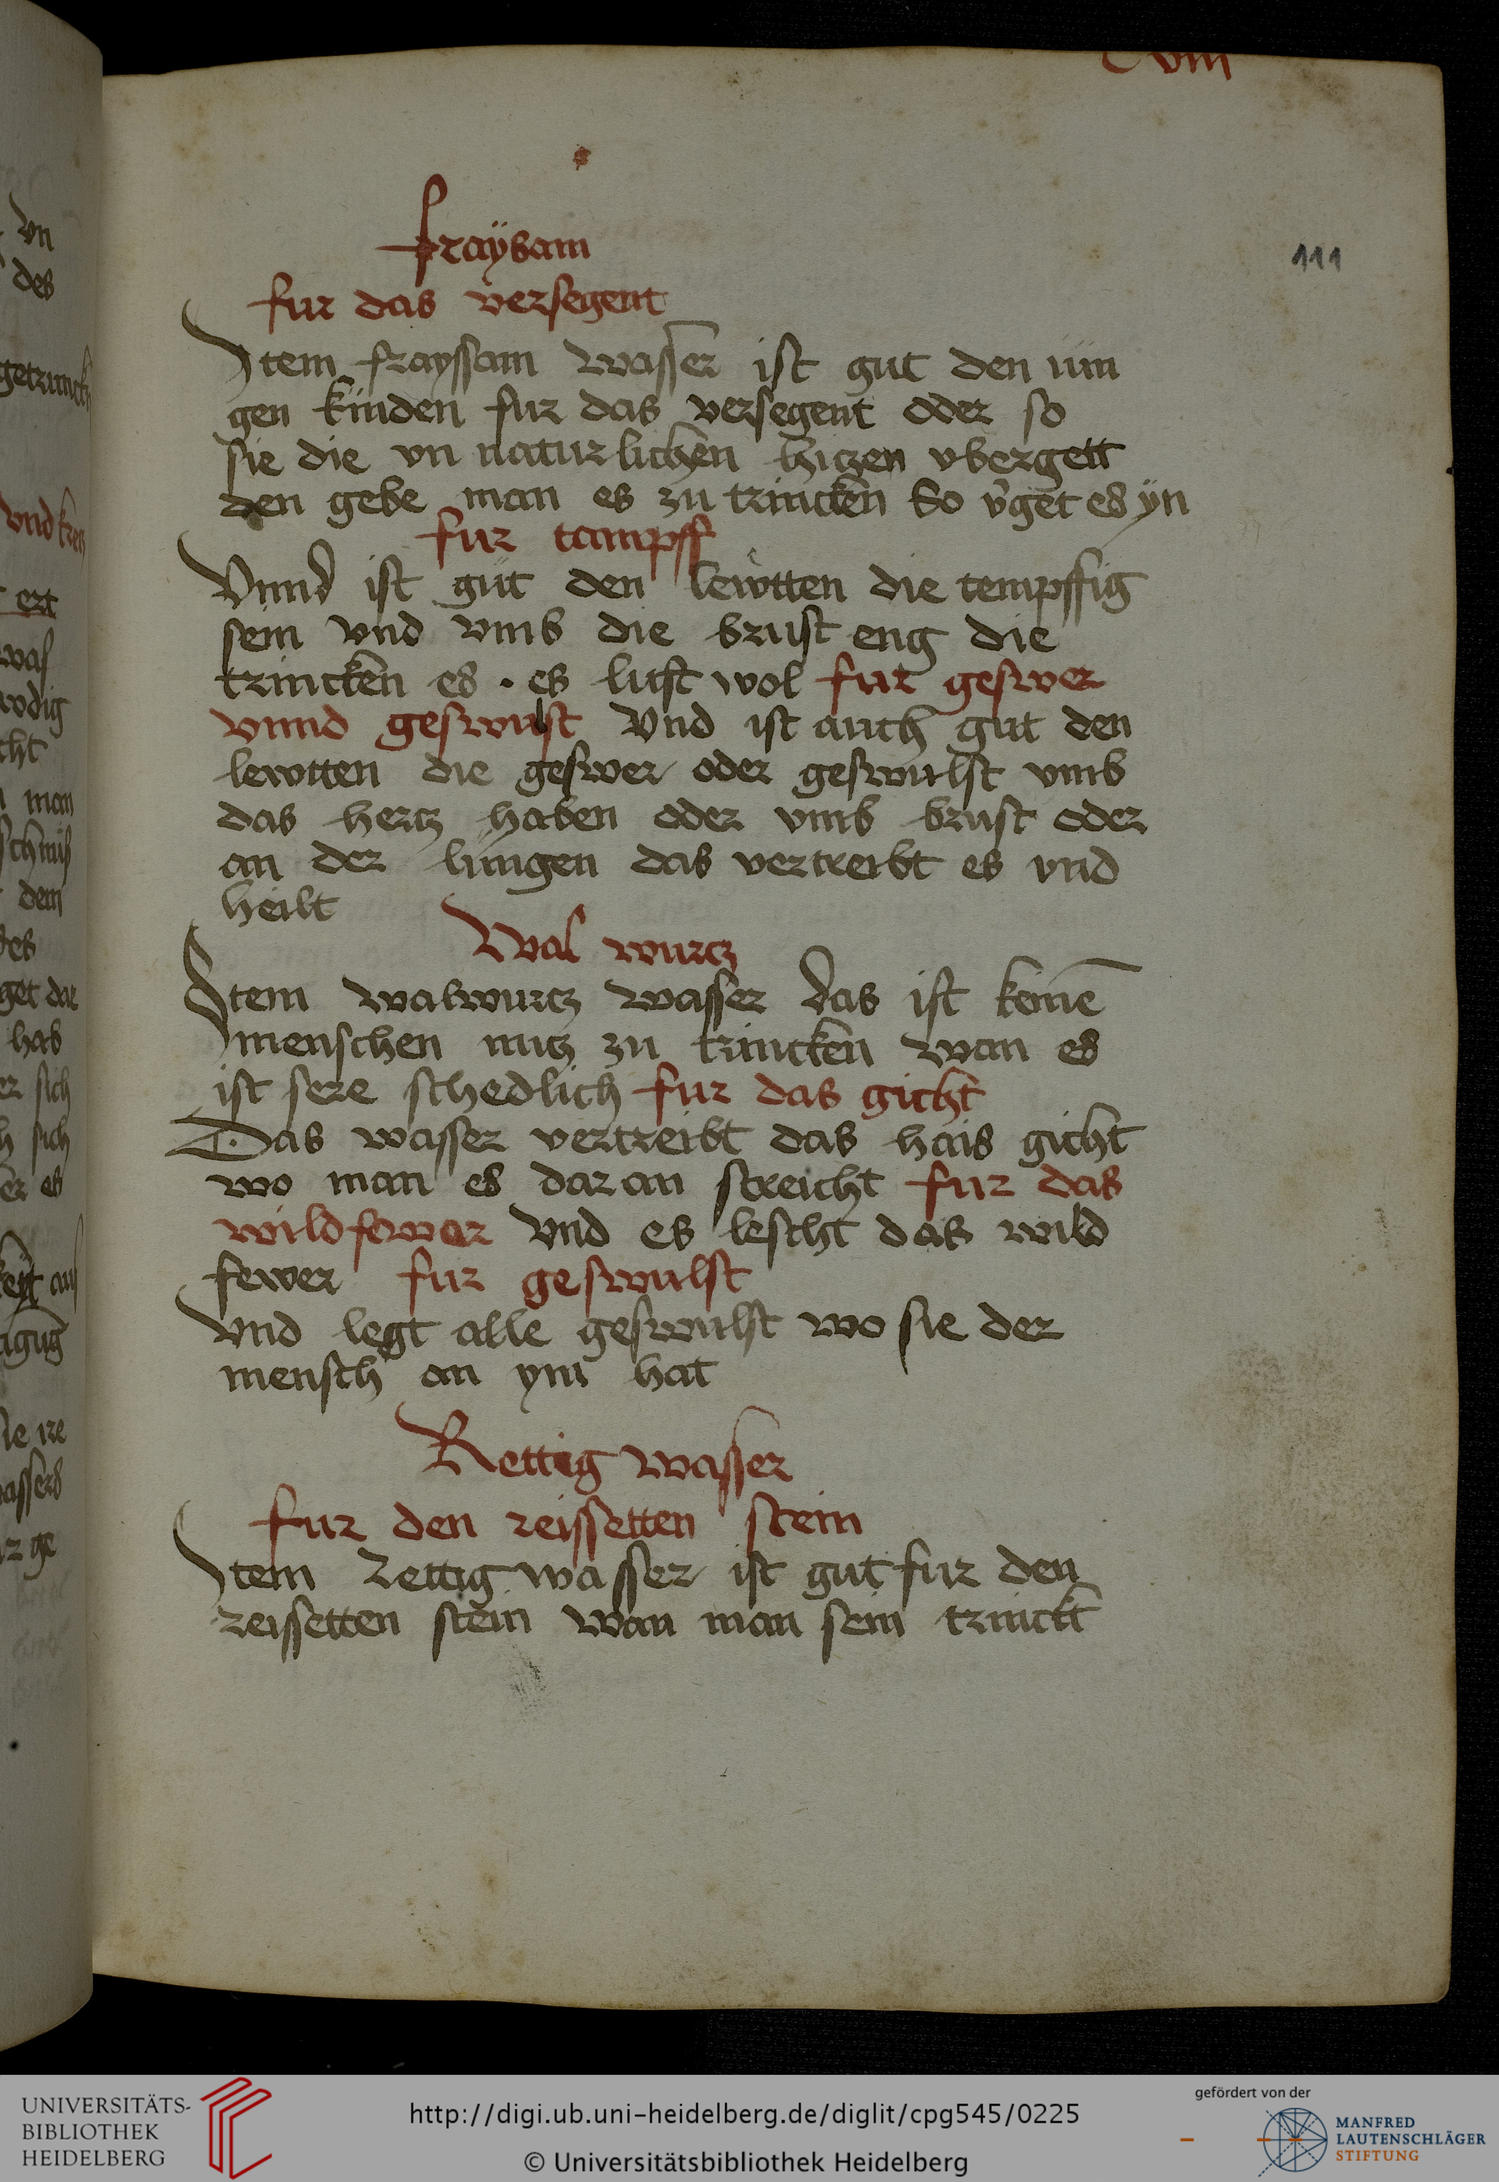 C viii
fraÿsam
111
fur das versegent
Item frayssam wasser ist gut den iun
gen kinden fur das versegent oder so
sie die vn naturlichen hitzen vbergett
den gebe man es zu trincken So v͛get es ÿn
fur tampff
Vnnd ist gut den lewtten die tempffig
sein vnd vmb die brust eng die
trincken es . es lufft wol fur geswer
vnnd geswulst Vnd ist auch gut den
lewtten die geswer oder geswulst vmb
das hertz haben oder vmb brust oder
an der lungen das vertreibt es vnd
heilt
Wal wurtz
Item walwurtz wasser das ist keinē
menschen nutz zu trincken wan es
ist sere schedlich fur das gicht
Das wasser vertreibt das hais gicht
wo man es dar an streicht fur das
wild fewer Vnd es lescht das wild
fewer fur geswulst
Vnd legt alle geswulst wo sie der
mensch an ym hat
Rettig wasser
fur den reissetten stein
Item Rettig wasser ist gut fur den
reissetten stein wan man sein trinckt
vn
des
getrunck
vnd kren
ert
was
wdig
cht
man
schmis
dem
des
get dar
hab
er sich
h sich
er es
keit auf
igūg
le ire
assers
r ge
UNIVERSITÄTS-
BIBLIOTHEK
HEIDELBERG
http://digi.ub.uni-heidelberg.de/diglit/cpg545/0225
© Universitätsbibliothek Heidelberg
gefördert von der
MANFRED
LAUTENSCHLÄGER
STIFTUNG